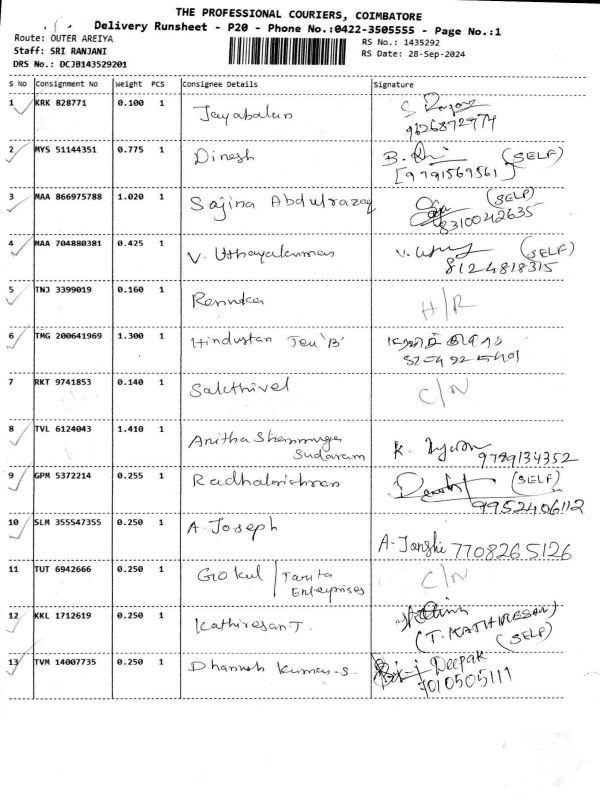 THE PROFESSIONAL COURIERS, COIMBATORE
Delivery Runsheet - P20 - Phone No.:0422-3505555 - Page No.:1
Route: OUTER AREIYA
RS No.: 1435292
Staff: SRI RANJANI
RS Date: 28-Sep-2024
DRS No.: DCJB143529201
S No Consignment No Weight PCS Consignee Details Signature
1 KRK 828771 0.100 1 Jayabalan
9626872974
2 MYS 51144351 0.775 1 Dinesh B. (SELF)
[9791569561]
3 MAA 866975788 1.020 1 Sajina Abdulrazaq (SELF)
8310042635
4 MAA 704880381 0.425 1 V. Uthayakumar (SELF)
8124818315
5 TNJ 3399019 0.160 1 Renuka H/R
6 TMG 200641969 1.300 1 Hindustan Tea 'B'
7 RKT 9741853 0.140 1 Sakthivel C/N
8 TVL 6124043 1.410 1 Anitha Shanmuga
Sudaram K.
9789134352
9 GPM 5372214 0.255 1 Radhakrishnan (SELF)
9952406112
10 SLM 355547355 0.250 1 A. Joseph
A- Janshi 7708265126
11 TUT 6942666 0.250 1 Gokul / Tanita C/N
Enterprises
12 KKL 1712619 0.250 1 Kathiresan T.
(T. KATHIRESAN)
(SELF)
13 TVM 14007735 0.250 1 Dhanush Kumar. S. Deepak
7010505111